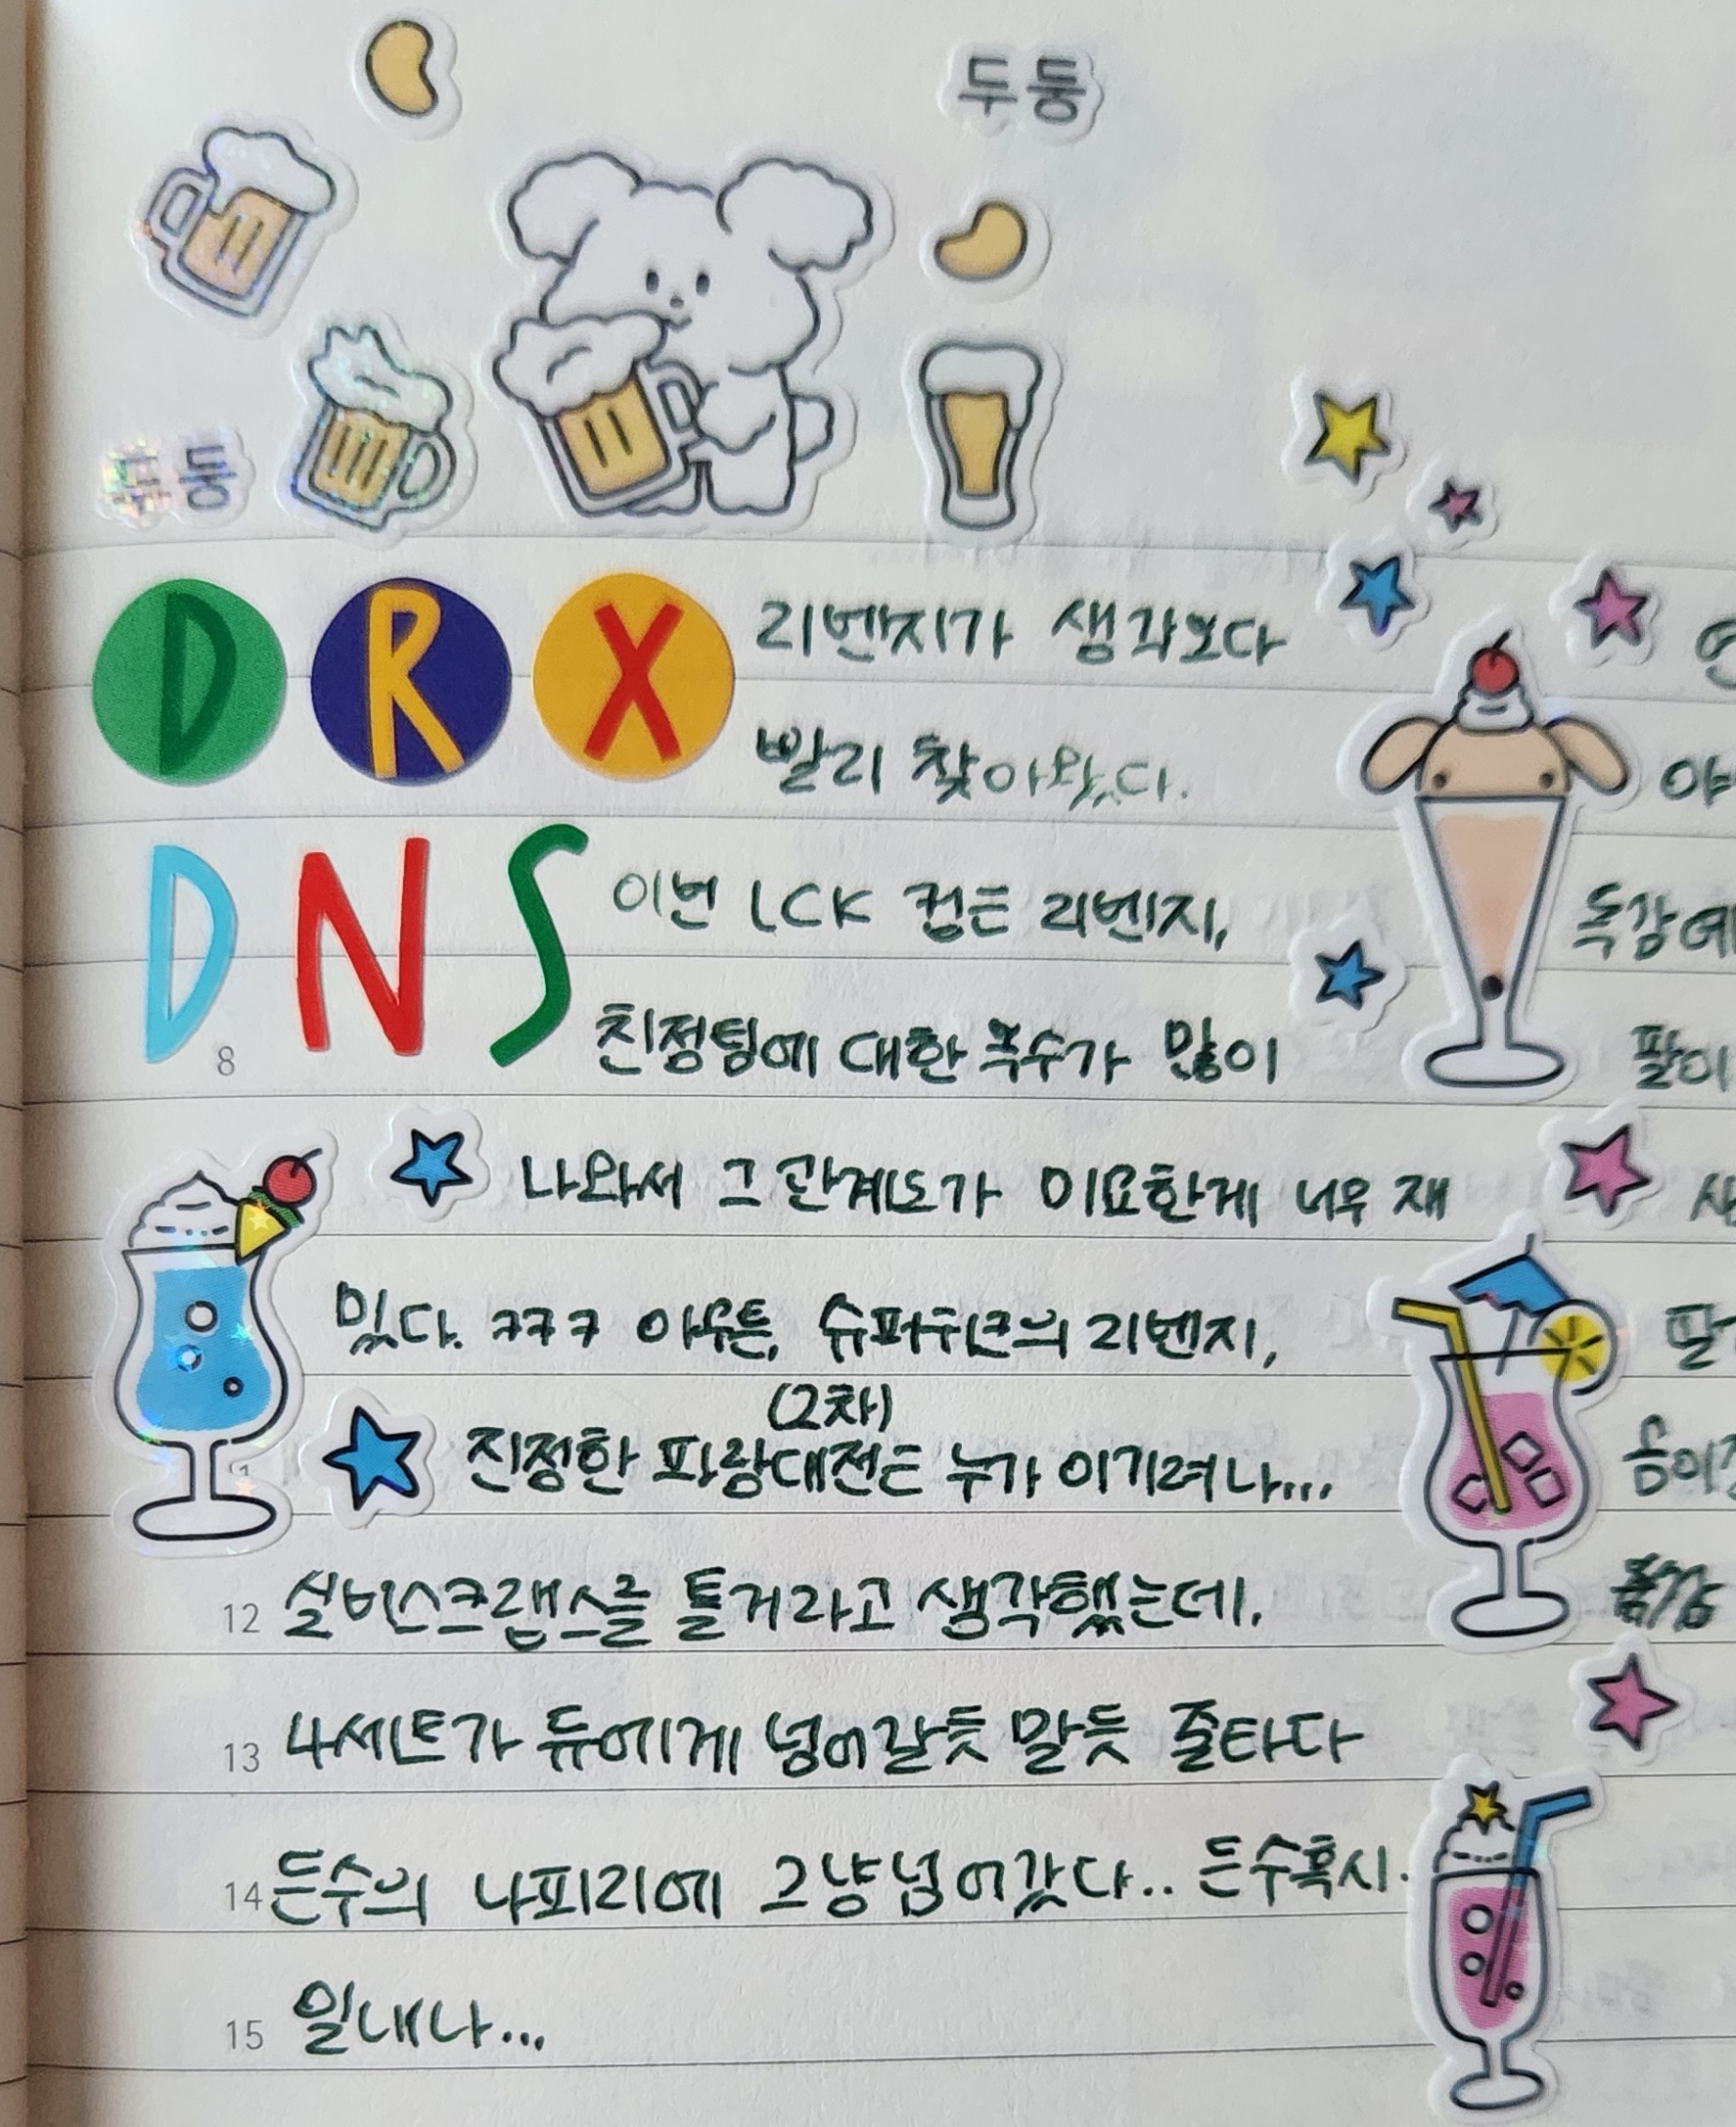 두둥
두둥
DRX 리벤지가 생각보다
빨리 찾아왔다.
DNS 이번 LCK 컵은 리벤지,
8 친정팀에 대한 복수가 많이
나와서 그 관계도가 미묘한게 너무 재
밌다. ㅋㅋㅋ 아무튼, 슈퍼위크의 리벤지,
(2차)
진정한 파랑대전은 누가 이기려나...
12 실버스크랩스를 틀거라고 생각했는데,
13 4세트가 듀에게 넘어갈듯 말듯 줄타다
14 든수의 나피리에 그냥 넘어갔다.. 든수혹시.
15 일내나...
야
독감에
팔이